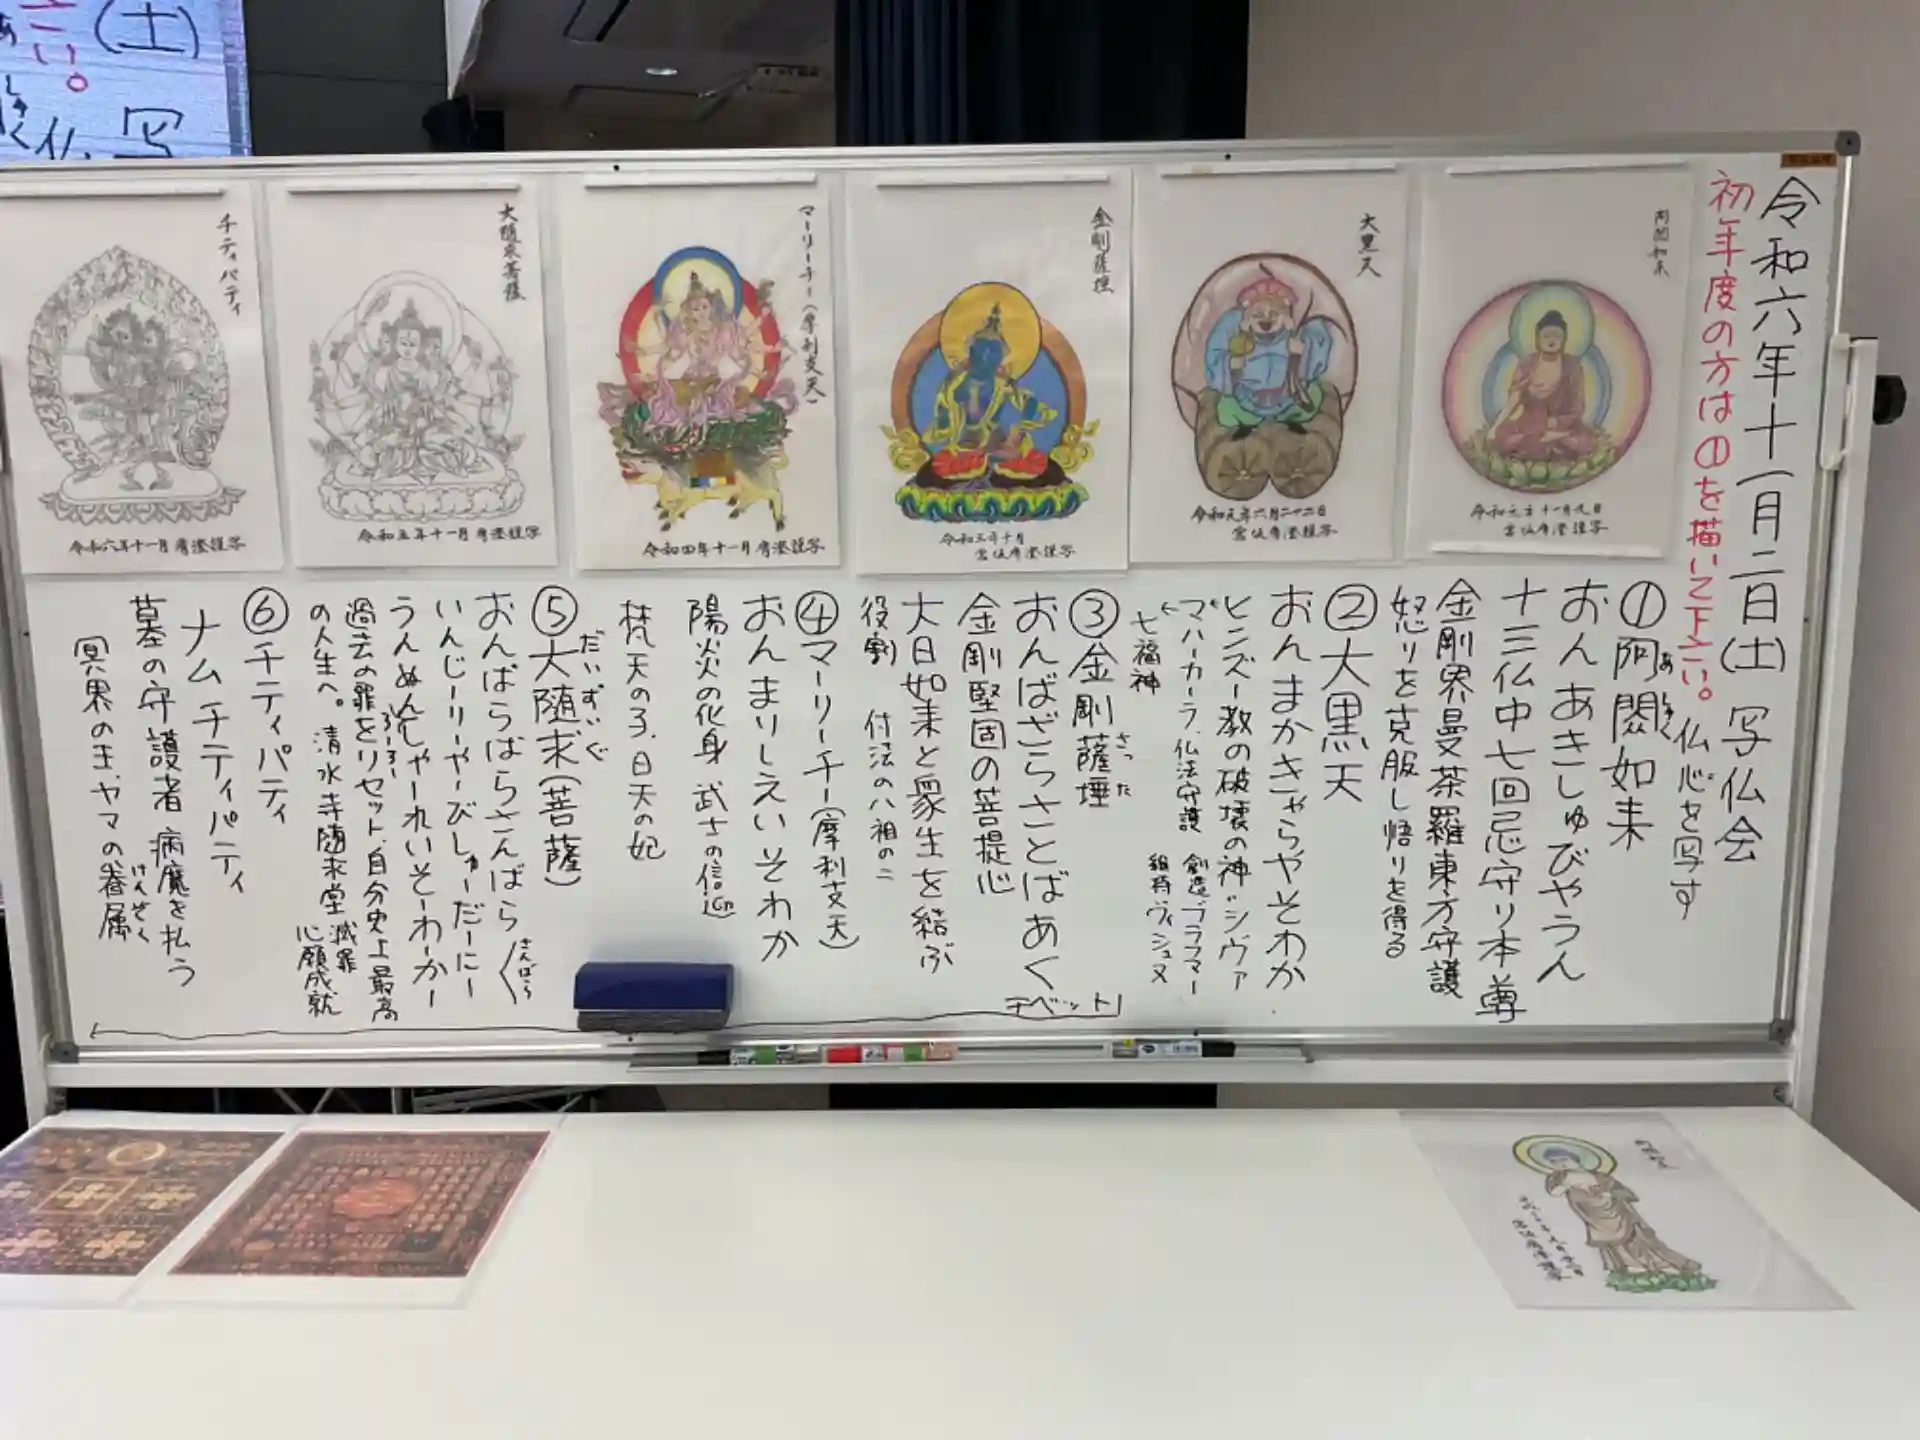 令和六年十一月二日(土) 写仏会
仏心を写す
初年度の方は①を描いて下さい。
①阿閦如来
あしゅく
おんあきしゅびやうん
十三仏中七回忌守り本尊
金剛界曼荼羅東方守護
怒りを克服し悟りを得る
②大黒天
おんまかきゃらやそわか
ヒンズー教の破壊の神=シヴァ
創造ブラフマー
維持ヴィシュヌ
マハーカーラ、仏法守護
七福神
③金剛薩埵
さった
おんばざらさとばあく
金剛堅固の菩提心
大日如来と衆生を結ぶ
役割 付法の八祖の二
チベット
④マーリーチー(摩利支天)
おんまりしえいそわか
陽炎の化身 武士の信仰
梵天の子、日天の妃
⑤大随求(菩薩)
だいずいぐ
おんばらばらさんばら
さんばら
いんじーりーやーびしゅーだーにー
うんぬん
ろーろーしゃーれいそーわーかー
過去の罪をリセット、自分史上最高
の人生へ。清水寺随求堂
滅罪
心願成就
⑥チティパティ
ナムチティパティ
墓の守護者 病魔を払う
冥界の主、ヤマの眷属
けんぞく
阿閦如来
大黒天
令和元年六月二十二日
金剛薩埵
令和三年十月
マーリーチー(摩利支天)
令和四年十一月
謹写
大随求菩薩
令和五年十一月
謹写
チティパティ
令和六年十一月
謹写
(土)
写
仏